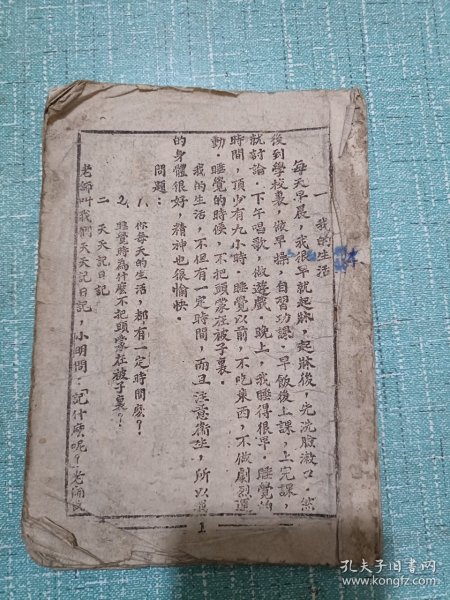 一 我的生活
每天早晨，我很早就起牀，起牀後，先洗臉漱口．然
後到學校裏，做早操．自習功課．早飯後上課，上完課，
就討論．下午唱歌，做遊戲．晚上，我睡得很早．睡覺的
時間，頂少有九小時．睡覺以前，不吃東西，不做劇烈運
動．睡覺的時候，不把頭蒙在被子裏．
我的生活，不但有一定時間，而且注意衛生，所以我
的身體很好，精神也很愉快．
問題：
1、你每天的生活，都有一定時間麼？
2、睡覺時為什麼不把頭蒙在被子裏？
二 天天記日記
老師叫我們天天記日記，小明問：「記什麼呢？老師說
1
孔夫子旧书网
www.kongfz.com